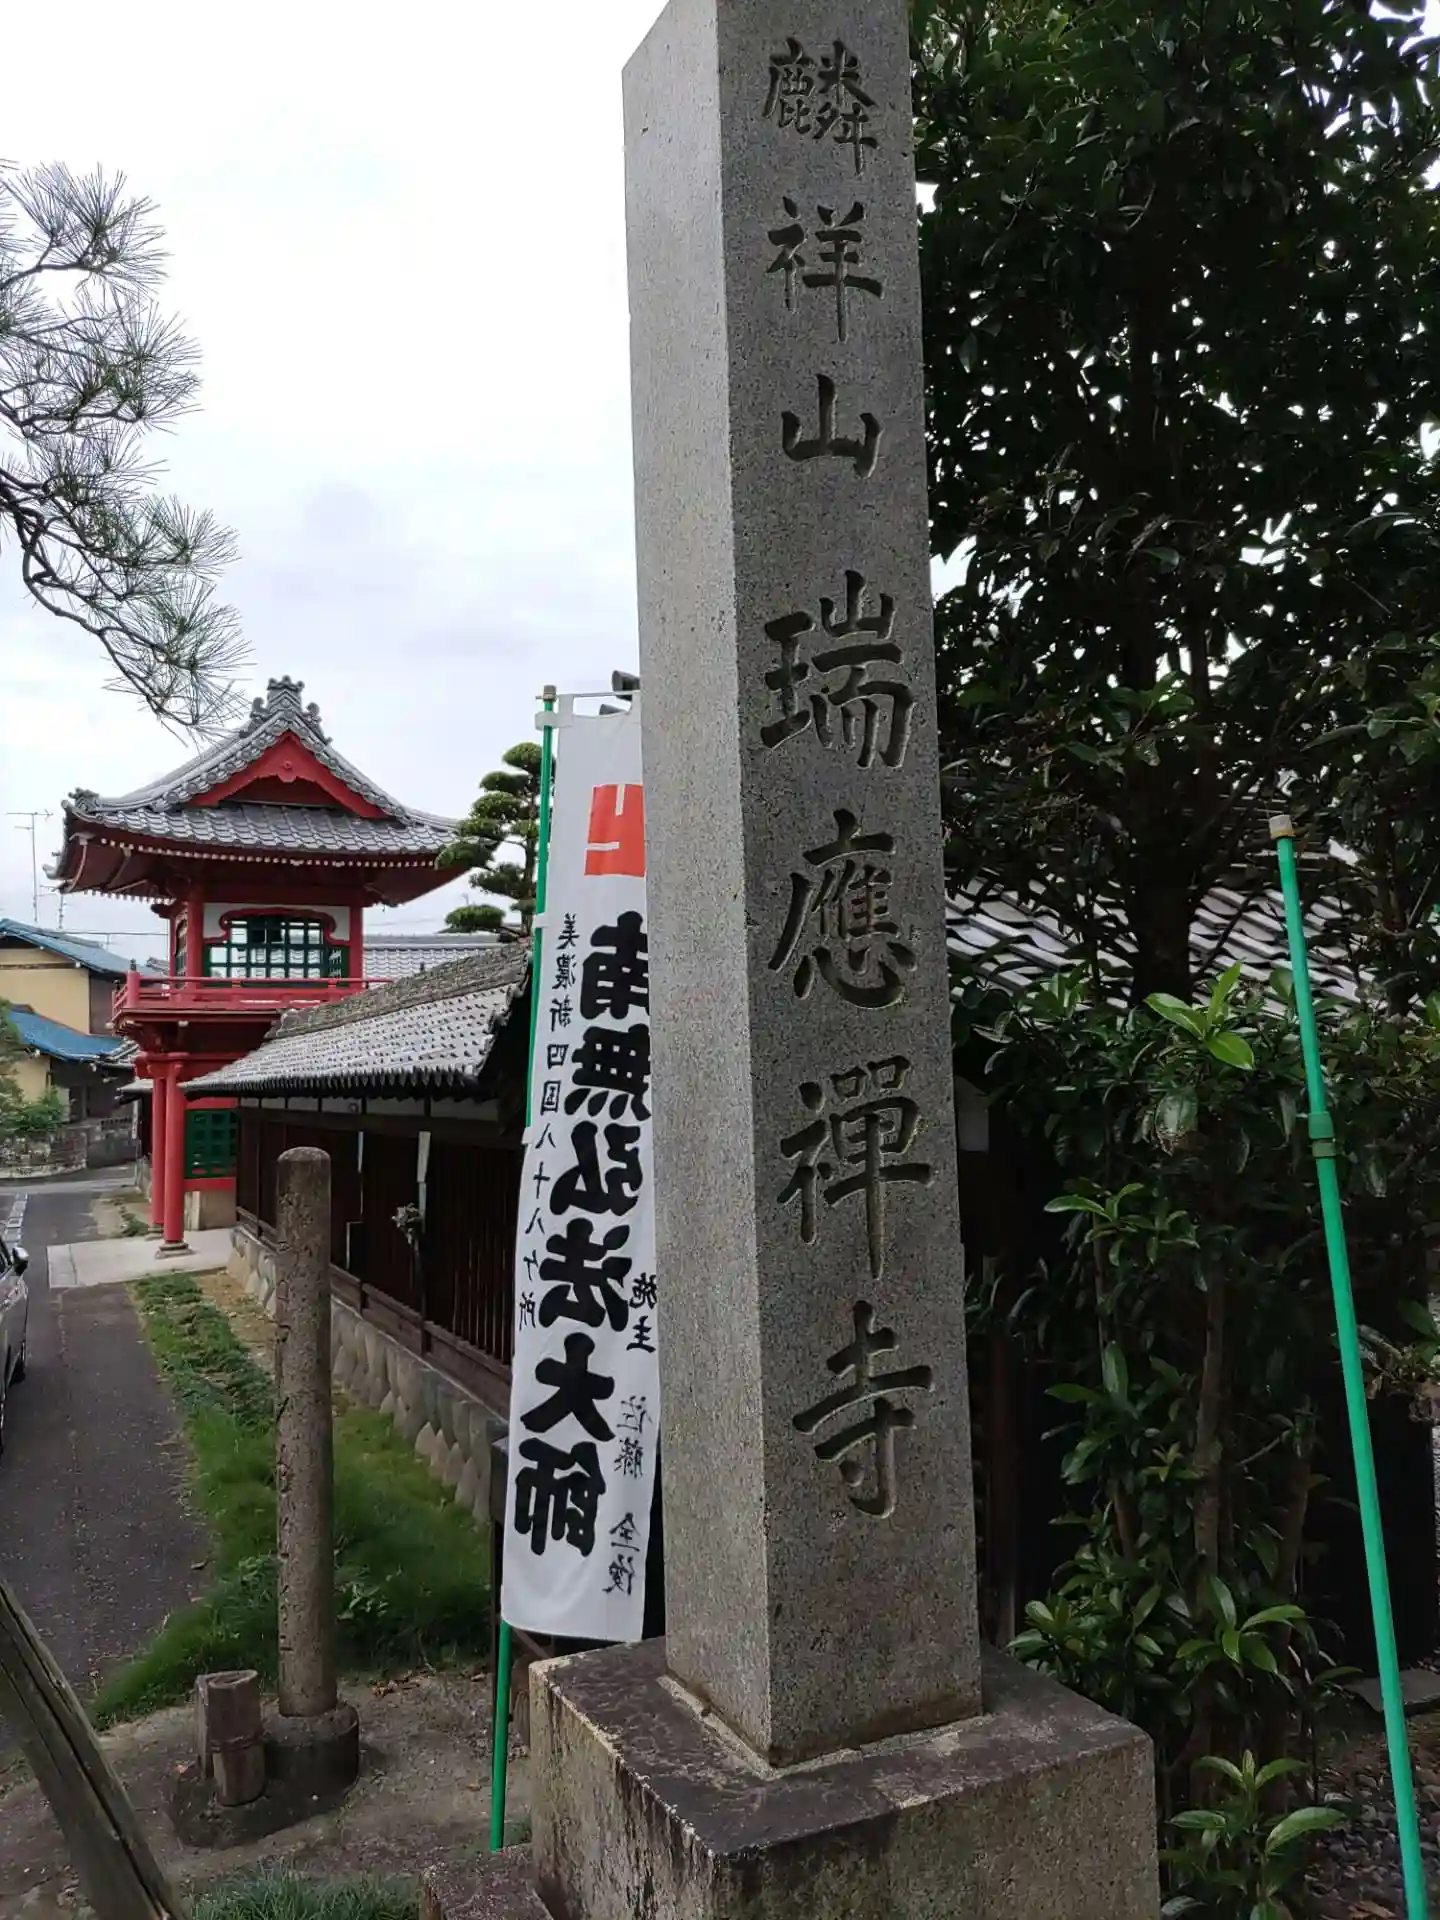 麟祥山瑞應禪寺
美濃新四国八十八ヶ所
南無弘法大師
施主 佐藤 全俊